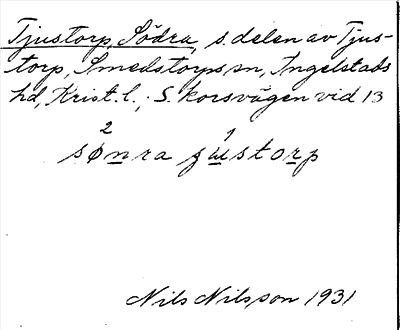 Tjustorp, Södra, s. delen av Tjus-
torp, Smedstorps sn, Ingelstads
hd, Krist. l., S. korsvägen vid 13
2 1
sønra ʃustorp
Nils Nilsson 1931